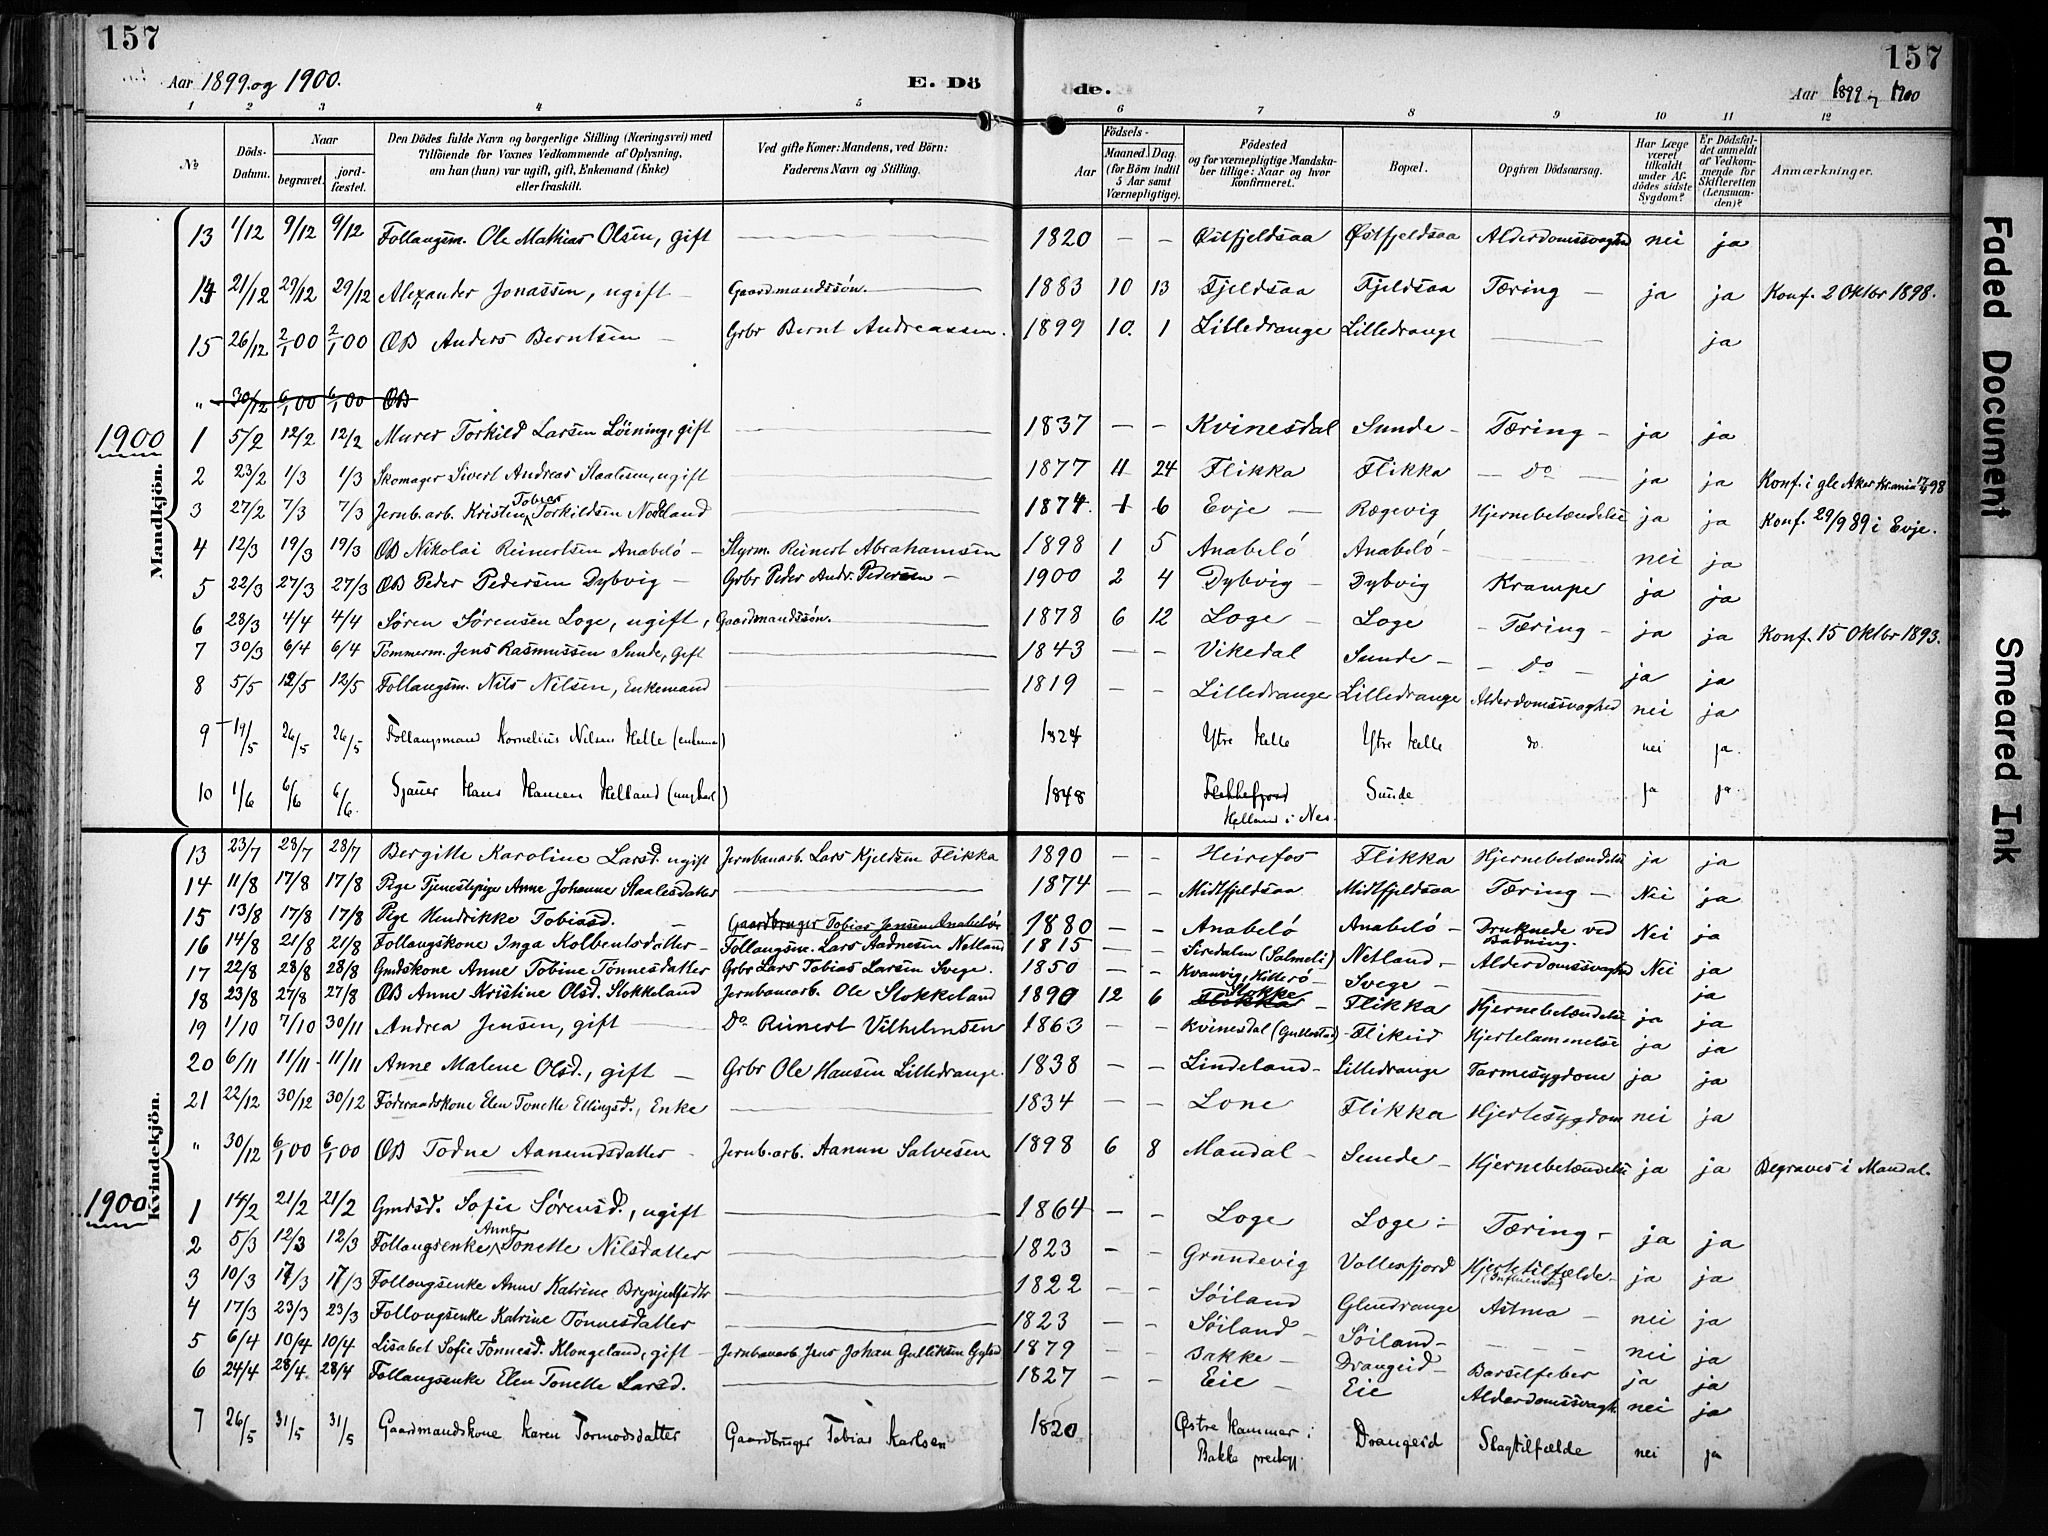 157
157
Aar 1899 og 1900.
E. Dö
de.
Aar 1899 og 1900
1 2 3 4 5 6 7 8 9 10 11 12
No
Döds-Datum.
Naar
begravet.
jord-fæstet.
Den Dödes fulde Navn og borgerlige Stilling (Næringsvei) med
Tilföiende for Voxnes Vedkommende af Oplysning,
om han (hun) var ugift, gift, Enkemand (Enke)
eller fraskilt.
Ved gifte Koner: Mandens, ved Börn:
Faderens Navn og Stilling.
Födsels-
Aar
Maaned. Dag.
(for Börn indtil
5 Aar samt
Værnepligtige).
Födested
og for værnepligtige Mandska-
ber tillige: Naar og hvor
konfirmeret.
Bopæl.
Opgiven Dödsaarsag.
Har Læge
været
tilkaldt
under Af-
dödes sidste
Sygdom?
Er Dödsfal-
det anmeldt
af Vedkom-
mende for
Skifteretten
(Lensman-
den)?
Anmærkninger.
Mandkjön.
13 1/12 9/12 9/12 Follaugsm. Ole Mathias Olsen, gift 1820 – – Østfjeldsaa Østfjeldsaa Alderdomssvaghed nei ja
14 21/12 29/12 29/12 Alexander Jonassen, ugift Gaardmandssön. 1883 10 13 Fjeldsaa Fjeldsaa Tæring – ja ja Konf. 2 Oktbr 1898.
15 26/12 2/1 00 2/1 00 ØB Anders Berntsen Grbr Bernt Andreassen. 1899 10. 1 Lilledrange Lilledrange ja
" 30/12 6/1 00 6/1 00 ØB
1900
1 5/2 12/2 12/2 Murer Torkild Larsen Löining, gift 1837 – – Kvinesdal Sunde – Tæring – ja ja
2 23/2 1/3 1/3 Skomager Sivert Andreas Staalesen, ugift 1877 11 24 Flikka Flikka – Do – ja ja Konf. i gle Aker
3 27/2 7/3 7/3 Jernb. arb. Kristen Tobias Torkildsen Nodland 1874 1 6 Evje – Rægevig Hjernebetændelse ja ja Konf. 29/9 89 i Evje.
4 12/3 19/3 19/3 ØB Nikolai Reinertsen Anabelö – Styrm. Reinert Abrahamsen 1898 1 5 Anabelö Anabelö – nei ja
5 22/3 27/3 27/3 ØB Peder Pedersen Dybvig – Grbr Peder Andr. Pedersen – 1900 2 4 Dybvig – Dybvig Krampe ja ja
6 28/3 4/4 4/4 Sören Sörensen Loge, ugift, Gaardmandssön. 1878 6 12 Loge – Loge – Tæring – ja ja Konf. 15 Oktbr 1893.
7 30/3 6/4 6/4 Tømmerm. Jens Rasmussen Sunde, Gift 1843 – – Vikedal Sunde – – Do – ja ja
8 5/5 12/5 12/5 Follaugsm. Nils Nilsen, Enkemand 1819 – – Lilledrange Lilledrange Alderdomssvaghed nei ja
9 19/5 26/5 26/5 Follaugsmand Kornelius Nilsen Helle 1824 Ytre Helle Ytre Helle do. nei ja.
10 1/6 6/6 6/6 Sjauer Hans Hansen Helland (ungkarl) 1848 Flekkefjord Helland i Nes. Sunde ja ja.
Kvindekjön.
13 23/7 28/7 28/7 Bergitte Karoline Larsd. ugift Jernbanarb. Lars Kjeldsen Flikka 1890 – – Heirefos Flikka Hjernebetændelse ja ja
14 11/8 17/8 17/8 Pige Tjenestepige Anne Johanne Staalesdatter 1874 – – Midtfjeldsaa Midtfjeldsaa Tæring – Nei ja
15 13/8 17/8 17/8 Pige Hendrikke Tobiasd. Gaardbruger Tobias Jensen Anabelö 1880 – – Anabelö Anabelö – Druknede ved Badning. Nei ja
16 14/8 21/8 21/8 Follaugskone Inga Kolbentsdatter – Follaugsm. Lars Aadnesen Netland 1815 – – Siredalen (Salmeli) Netland – Alderdomssvaghed Nei ja
17 22/8 28/8 28/8 Gmdskone Anne Tobine Tönnesdatter Grbr Lars Tobias Larsen Svege. 1850 – – Kvanvig, Hitterö Svege – ja
18 23/8 27/8 27/8 ØB Anne Kristine Olsd. Stokkeland Jernbanearb. Ole Stokkeland 1890 12 6 Flikka Stokke – Flikka Hjernebetændelse ja ja
19 1/10 7/10 30/11 Andrea Jensen, gift Do. Reinert Vilhelmsen 1863 – – Kvinesdal (Gullestad) Flikeid Hjertelammelse ja ja
20 6/11 11/11 11/11 Anne Malene Olsd., gift – Grbr Ole Hansen Lilledrange. 1838 – – Lindeland – Lilledrange Tarmesygdom ja ja
21 22/12 30/12 30/12 Föderaadskone Elen Tonette Ellingsd., Enke 1834 – – Lone Flikka Hjertesygdom nei ja
" 30/12 6/1 00 6/1 00 ØB Todne Aanundsdatter – Jernb. arb. Aanun Salvesen 1898 6 8 Mandal – Sunde – Hjernebetændelse ja ja Begraves i Mandal.
1900
1 14/2 21/2 21/2 Gmdsd. Sofie Sörensd., ugift 1864 – – Loge Loge – Tæring – ja ja
2 5/3 12/3 12/3 Follaugsenke Anne Tonette Nilsdatter 1823 – – Grundevig Vollesfjord Hjertetilfælde (Influensa) – ja ja
3 10/3 17/3 17/3 Follaugsenke Anne Katrine Brynjulfsdtr 1822 – – Söiland Glendrange Astma – nei ja
4 17/3 23/3 23/3 Follaugsenke Katrine Tönnesdatter 1823 – – Söiland – Söiland – nei ja
5 6/4 10/4 10/4 Lisabet Sofie Tönnesd. Klongeland, gift – Jernbanarb Jens Johan Gulliksen 1879 – – Bakke – Drangeid – Barselfeber ja ja
6 24/4 28/4 28/4 Follaugsenke Elen Tonette Larsd. 1827 – – Eie – Eie Alderdomssvagh. nei ja
7 26/5 31/5 31/5 Gaardmandskone Karen Tormodsdatter Gaardbruger Tobias Karlsen 1820 Østre Hammer i Bakke prestegj. Drangeid Slagtilfælde nei ja
Faded Document
Smeared Ink